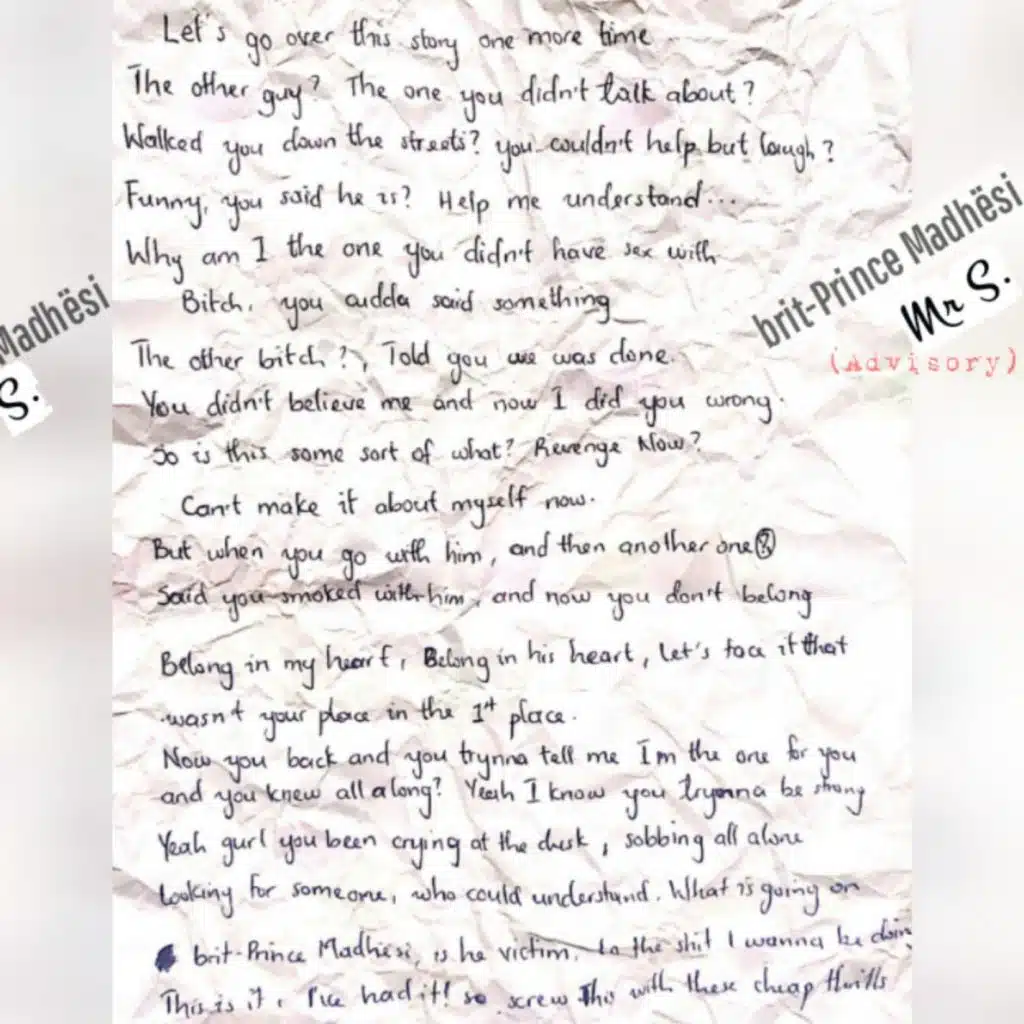 Let's go over this story one more time
The other guy? The one you didn't talk about?
Walked you down the streets? you couldn't help but laugh?
Funny, you said he is? Help me understand...
Why am I the one you didn't have sex with
Bitch, you cudda said something
The other bitch?, Told you we was done.
You didn't believe me and now I did you wrong.
So is this some sort of what? Revenge Now?
Can't make it about myself now.
But when you go with him, and then another one?
Said you smoked with him, and now you don't belong
Belong in my heart, Belong in his heart, Let's face it that
wasn't your place in the 1st place.
Now you back and you trynna tell me I'm the one for you
and you knew all along? Yeah I know you trynna be strong
Yeah gurl you been crying at the dusk, sobbing all alone
Looking for someone, who could understand. What is going on
brit-Prince Madhësi, is he victim, to the shit I wanna be doin
This is it, I've had it! so screw this with these cheap thrills
brit-Prince Madhësi
Mr S.
(Advisory)
Madhësi
S.